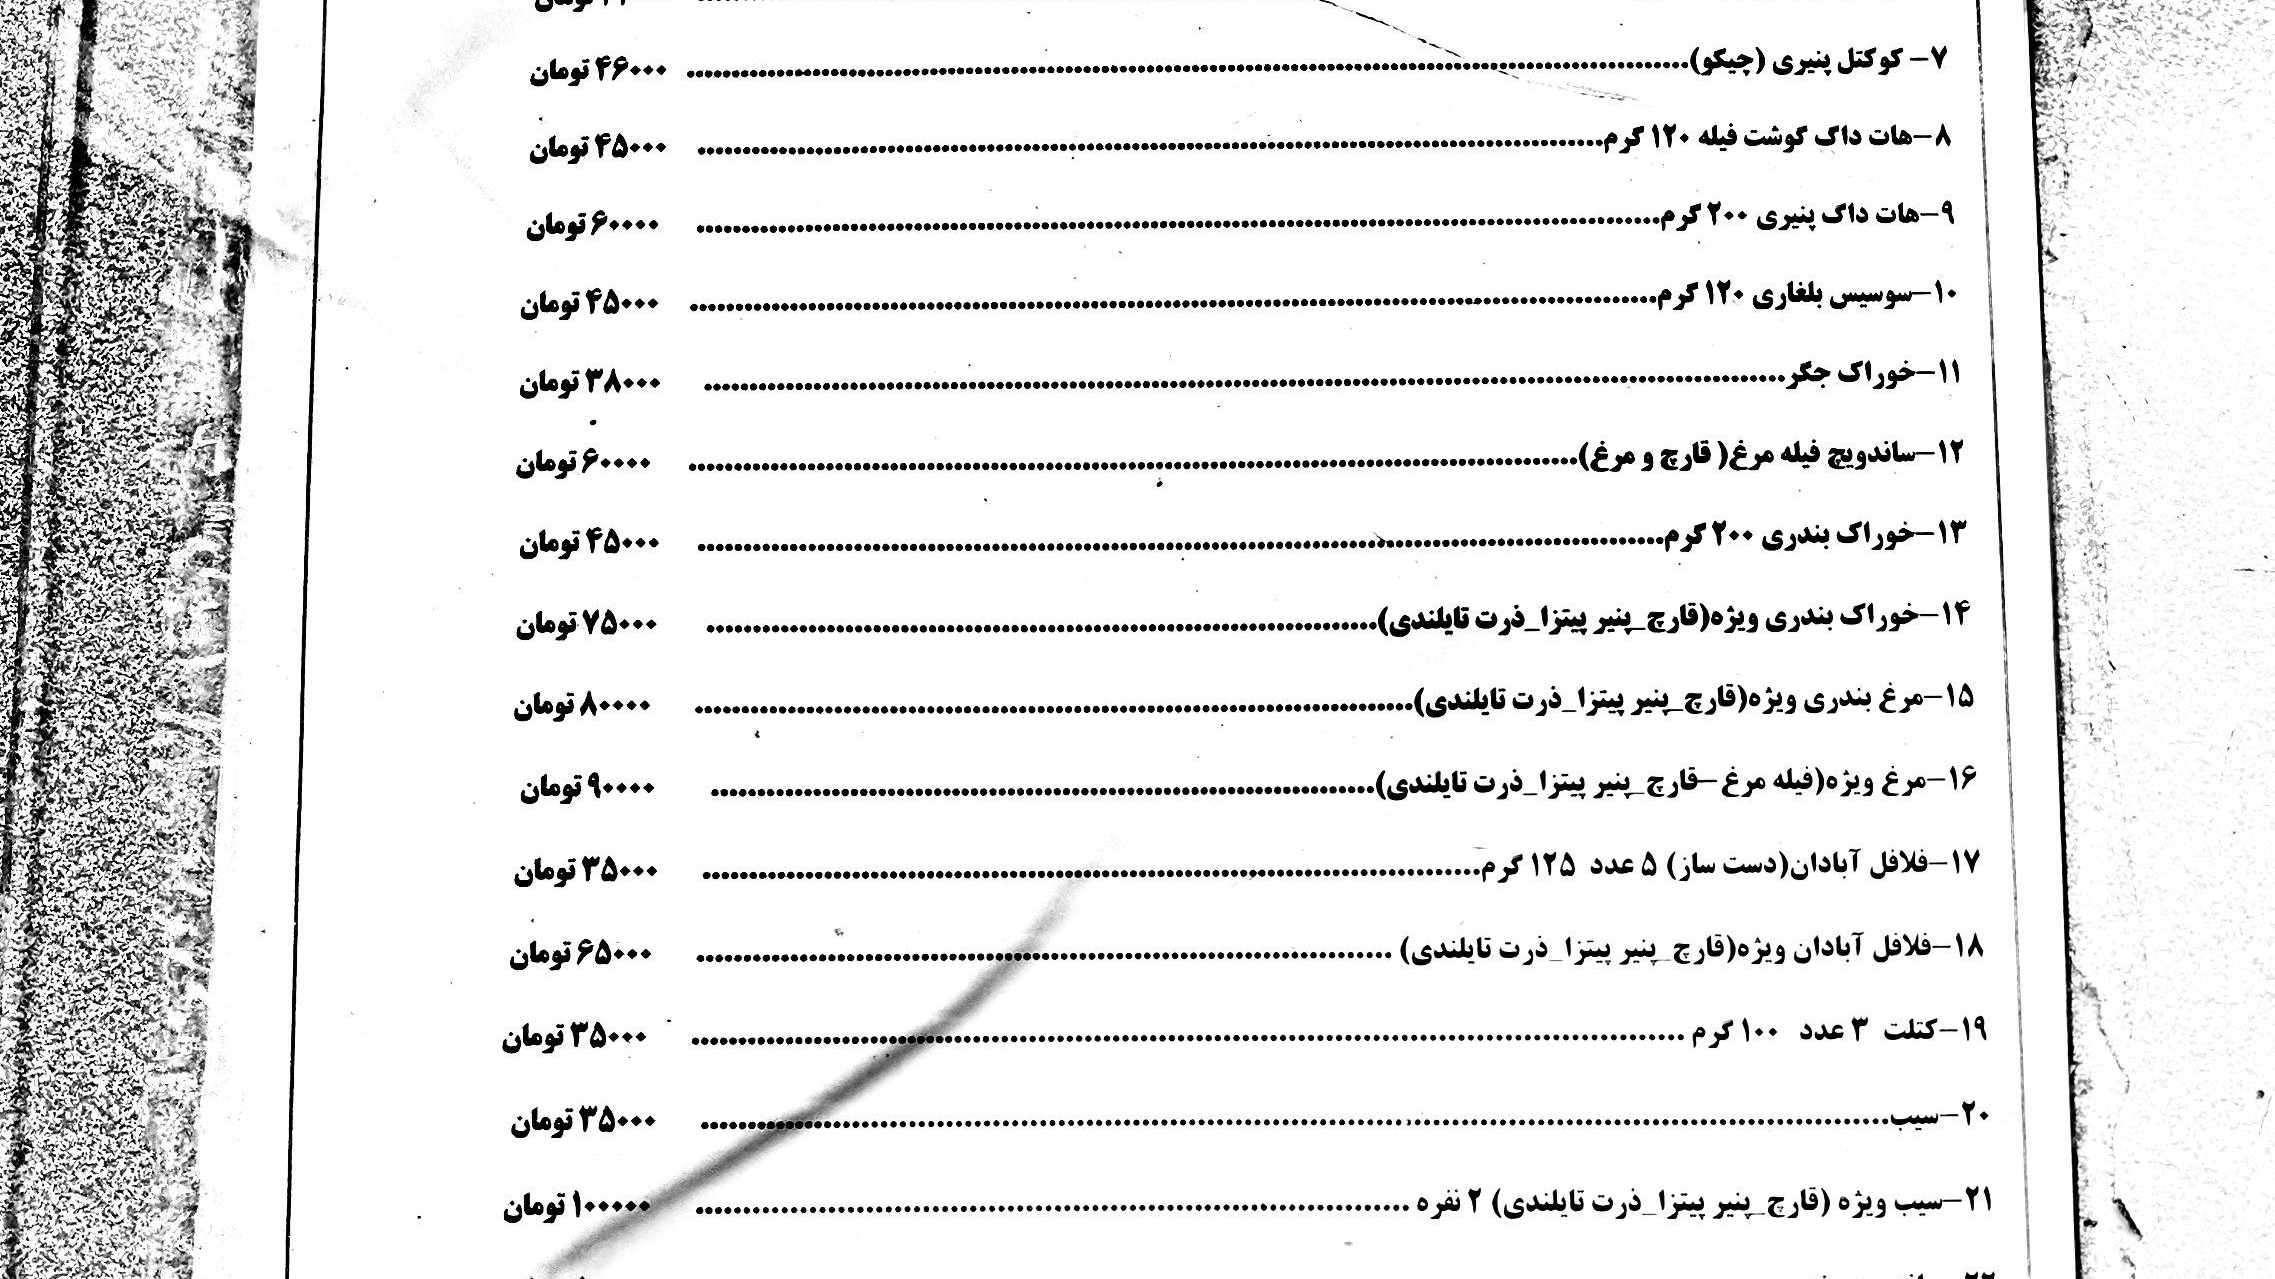 ۷- کوکتل پنیری (چیکو)........................ ۴۶۰۰۰ تومان
۸-هات داگ گوشت فیله ۱۲۰ گرم........................ ۴۵۰۰۰ تومان
۹-هات داگ پنیری ۲۰۰ گرم........................ ۶۰۰۰۰ تومان
۱۰-سوسیس بلغاری ۱۲۰ گرم........................ ۴۵۰۰۰ تومان
۱۱-خوراک جگر........................ ۳۸۰۰۰ تومان
۱۲-ساندویچ فیله مرغ( قارچ و مرغ)........................ ۶۰۰۰۰ تومان
۱۳-خوراک بندری ۲۰۰ گرم........................ ۴۵۰۰۰ تومان
۱۴-خوراک بندری ویژه(قارچ_پنیر پیتزا_ذرت تایلندی)........................ ۷۵۰۰۰ تومان
۱۵-مرغ بندری ویژه(قارچ_پنیر پیتزا_ذرت تایلندی)........................ ۸۰۰۰۰ تومان
۱۶-مرغ ویژه(فیله مرغ -قارچ_پنیر پیتزا_ذرت تایلندی)........................ ۹۰۰۰۰ تومان
۱۷-فلافل آبادان(دست ساز) ۵ عدد ۱۲۵ گرم........................ ۳۵۰۰۰ تومان
۱۸-فلافل آبادان ویژه(قارچ_پنیر پیتزا_ذرت تایلندی) ........................ ۶۵۰۰۰ تومان
۱۹-کتلت ۳ عدد ۱۰۰ گرم ........................ ۳۵۰۰۰ تومان
۲۰-سیب........................ ۳۵۰۰۰ تومان
۲۱-سیب ویژه (قارچ_پنیر پیتزا_ذرت تایلندی) ۲ نفره ........................ ۱۰۰۰۰۰ تومان